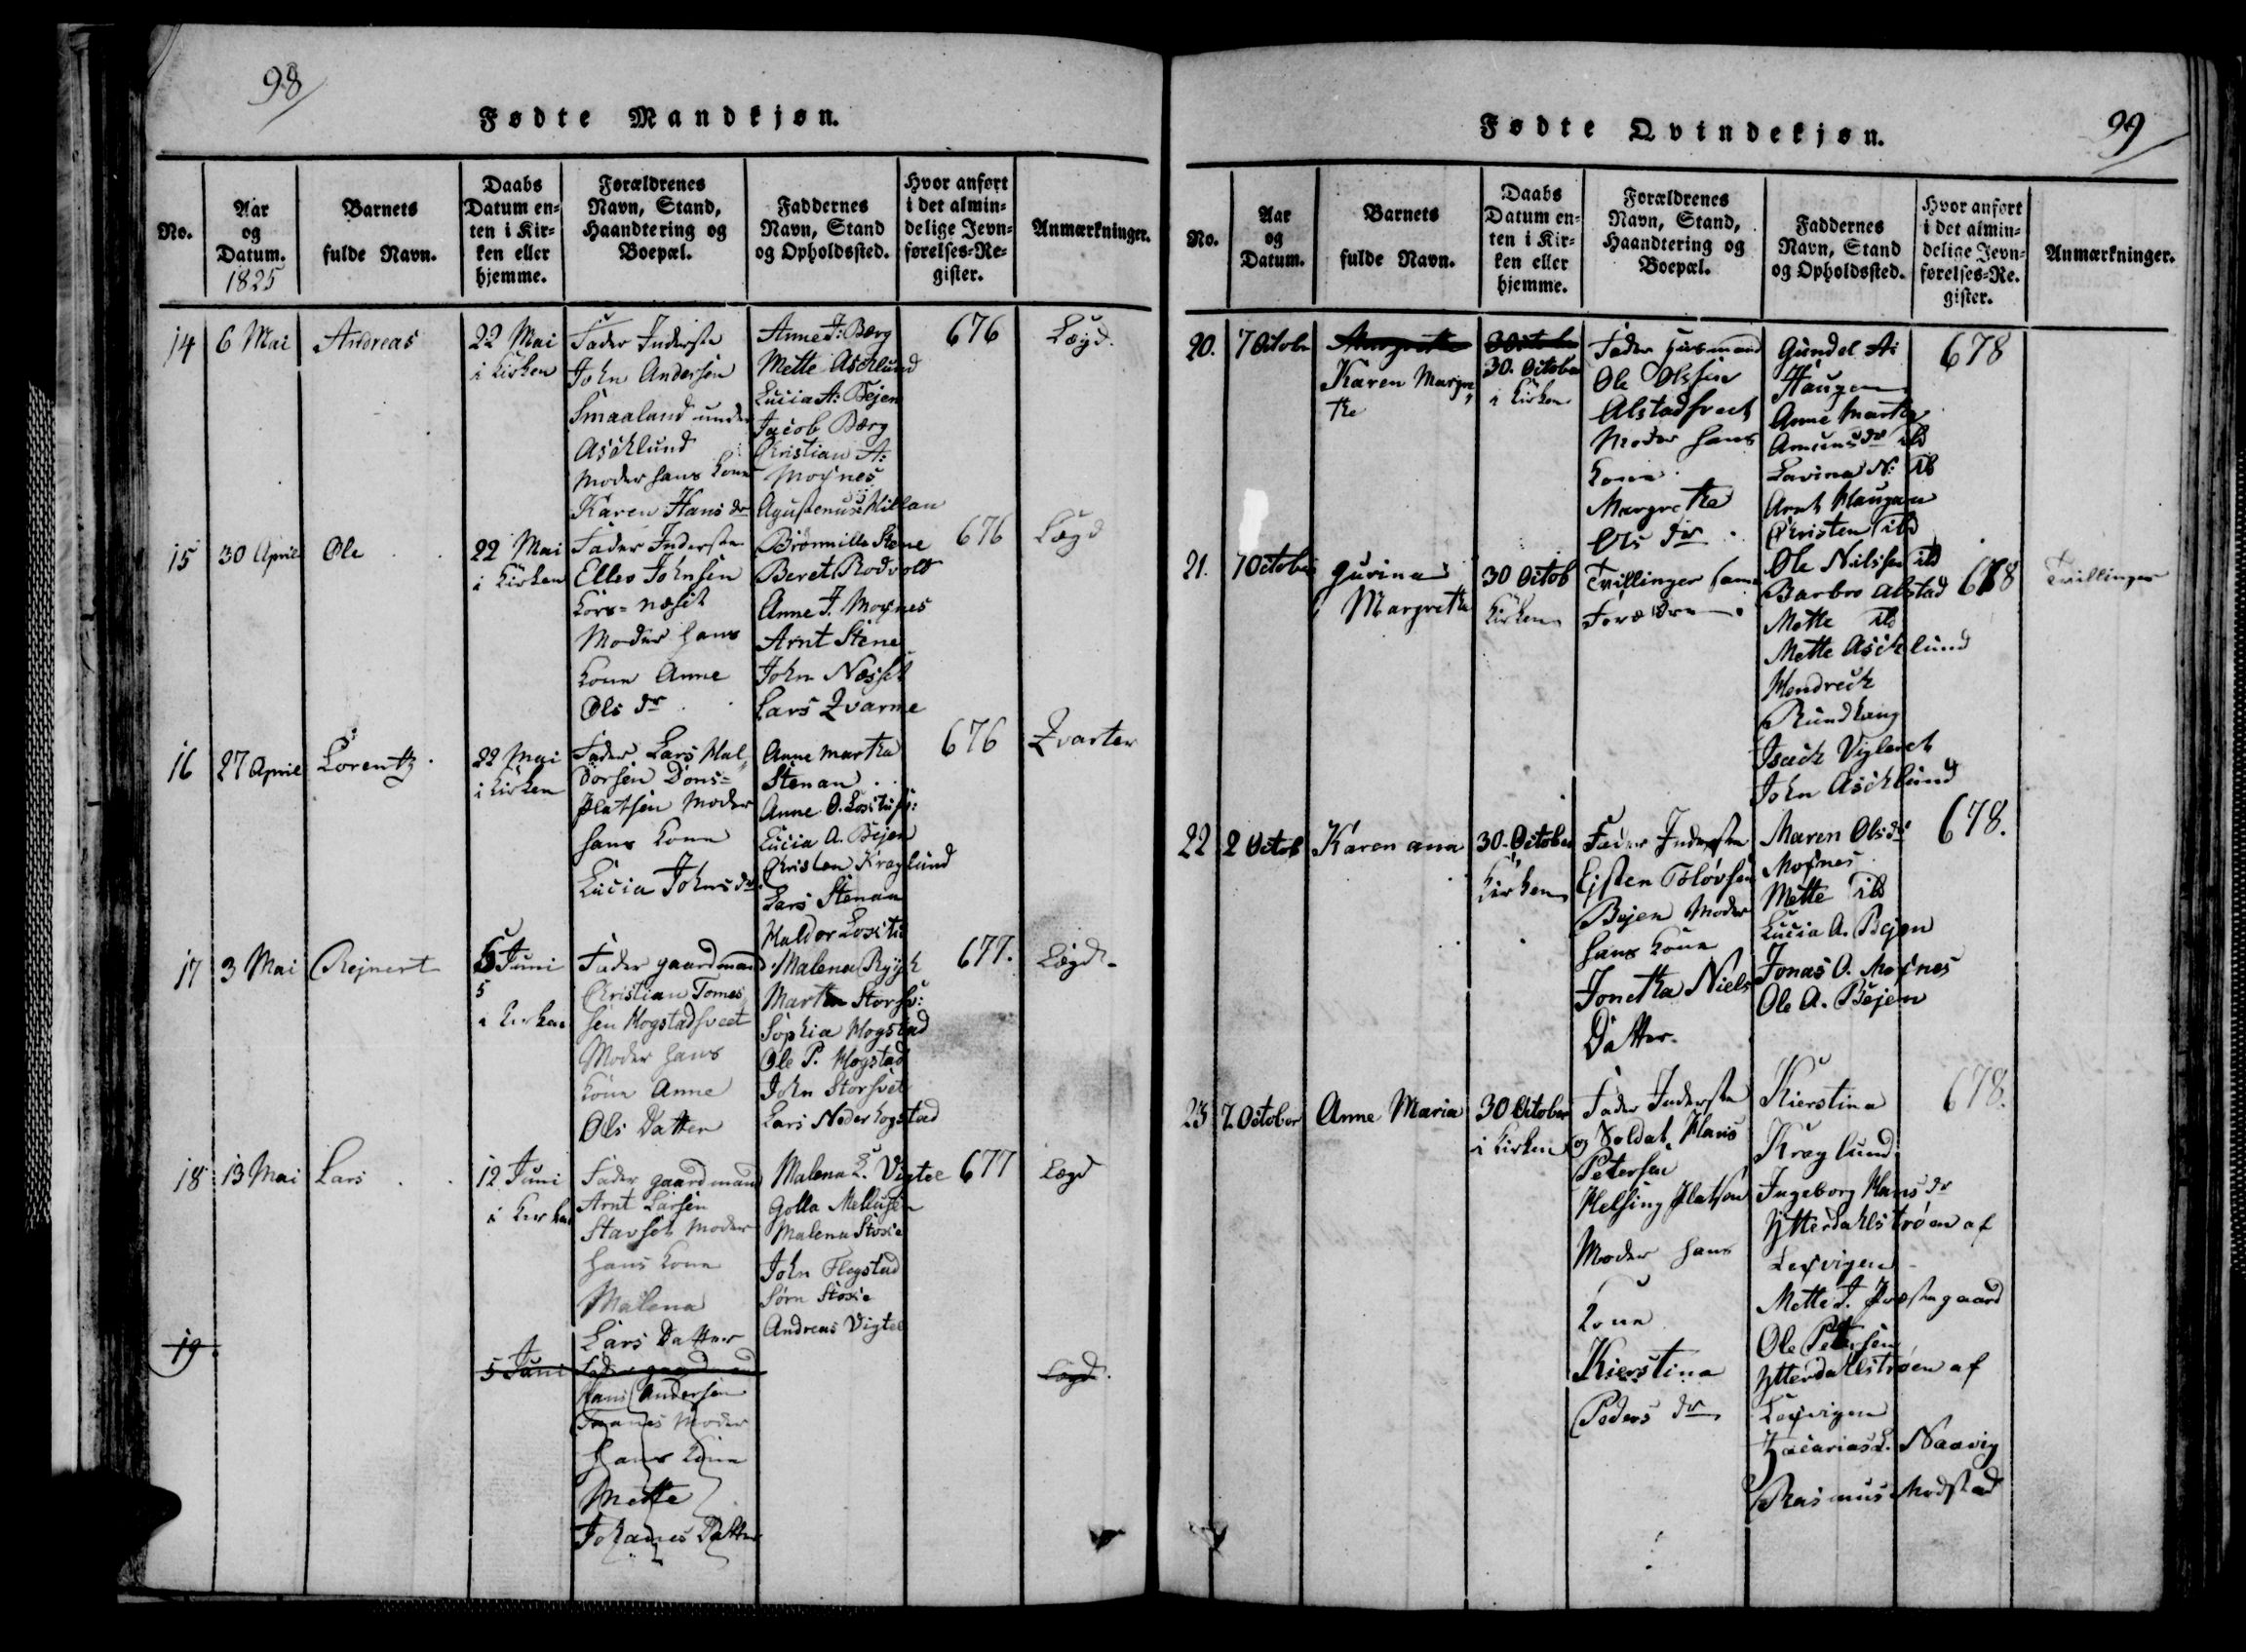 98
Fødte Mandkjøn.
No.
Aar
og
Datum.
1825
Barnets
fulde Navn.
Daabs
Datum en-
ten i Kir-
ken eller
hjemme.
Forældrenes
Navn, Stand,
Haandtering og
Boepæl.
Faddernes
Navn, Stand
og Opholdssted.
Hvor anført
i det almin-
delige Jevn-
førelses-Re-
gister.
Anmærkninger.
14
6 Mai
Andreas
22 Mai
i Kirken
Fader Inderste
John Andersen
Smaaland under
Aschlund
Moder hans Kone
Karen Hans dr
Anne J: Berg
Mette Aschlund
Lucia A: Bejen
Jacob Berg
Christian A:
Moxnes
676
Lægd.
15
30 April
Ole
22 Mai
i Kirken
Fader Inderste
Ellev Johnsen
Moder hans
Kone Anne
Ols dr
Beret Rodvold
Anne J. Moxnes
Arnt Stene
John Næsset
Lars Qvarme
676
Lægd
16
27 April
Lorentz
22 Mai
i Kirken
Fader Lars Hal-
dorsen Døns-
Platsen Moder
hans Kone
Lucia Johns dr
Anne Martha
Stenan
Lucia A. Bejen
Christen Kraglund
Lars Stenan
676
Qvarter
17
3 Mai
Rejnert
5 Juni
5
i Kirken
Fader gaardmand
Christian Tomes
sen Hogstadsveet
Moder hans
Kone Anne
Ols Datter
Sophia Hogstad
Ole P. Hogstad
John Storsvet
Lars Nederhogstad
677.
Lægd.
18
13 Mai
Lars
12 Juni
i Kirken
Fader gaardmand
Arnt Larsen
Stavset Moder
hans Kone
Malena
Lars Datter
Malena L. Vigtel
Malena Stoxie
John Flogstad
Sørn Stoxie
Andreas Vigtel
677
Lægd
19
5 Juni
Fader gaardmand
Hans Andersen
Moder
Hans Kone
Mette
Johanes Datter
Lægd.
99
Fødte Qvindekjøn.
No.
Aar
og
Datum.
Barnets
fulde Navn.
Daabs
Datum en-
ten i Kir-
ken eller
hjemme.
Forældrenes
Navn, Stand,
Haandtering og
Boepæl.
Faddernes
Navn, Stand
og Opholdssted.
Hvor anført
i det almin-
delige Jevn-
førelses-Re.
gister.
Anmærkninger.
20.
7 Octobr
Margrethe
Karen Margre
the
30. October
i Kirken
Fader Huusmand
Ole Olssen
Alstadsveet
Moder hans
Kone
Margrethe
Ols dr
Gundel A:
Haugan
Anne Martha
Amunsdr ibd
Lavina N: ib
Arnt Haugan
Christen ibd
Ole Nilssen ibd
678
21.
7 October
Gurina
Margretha
30 Octob
Kirken
Tvillinger samme
Forældre
Barbro Alstad
Mette ibd
Mette Aschlund
Hendrich
Rundhaug
Isach Vigleret
John Aschlund
678
Tvillinger
22
2 Octob
Karen ana
30 October
Kirken
Fader Inderste
Ejsten Toløvsen
Bejen Moder
hans Kone
Jonetha Niels
Datter.
Maren Olsdr
Moxnes
Mette ibd
Lucia A. Bejen
Jonas O. Moxnes
Ole A. Bejen
678.
23
7. October
Anne Maria
30 October
i Kirken
Fader Inderste
og Soldat Hans
Petersen
Helsing Platsen
Moder hans
Kone
Kierstina
Peders dr
Kierstina
Kraglund
Ingeborg Hans dr
Ytterdahlstrøen af
Lexvigen
Mette J. Præstegaard
Ole Petersen
Ytterdahlstrøen af
Lexvigen
Zacarias L. Naavig
Rasmus Modstad
678.